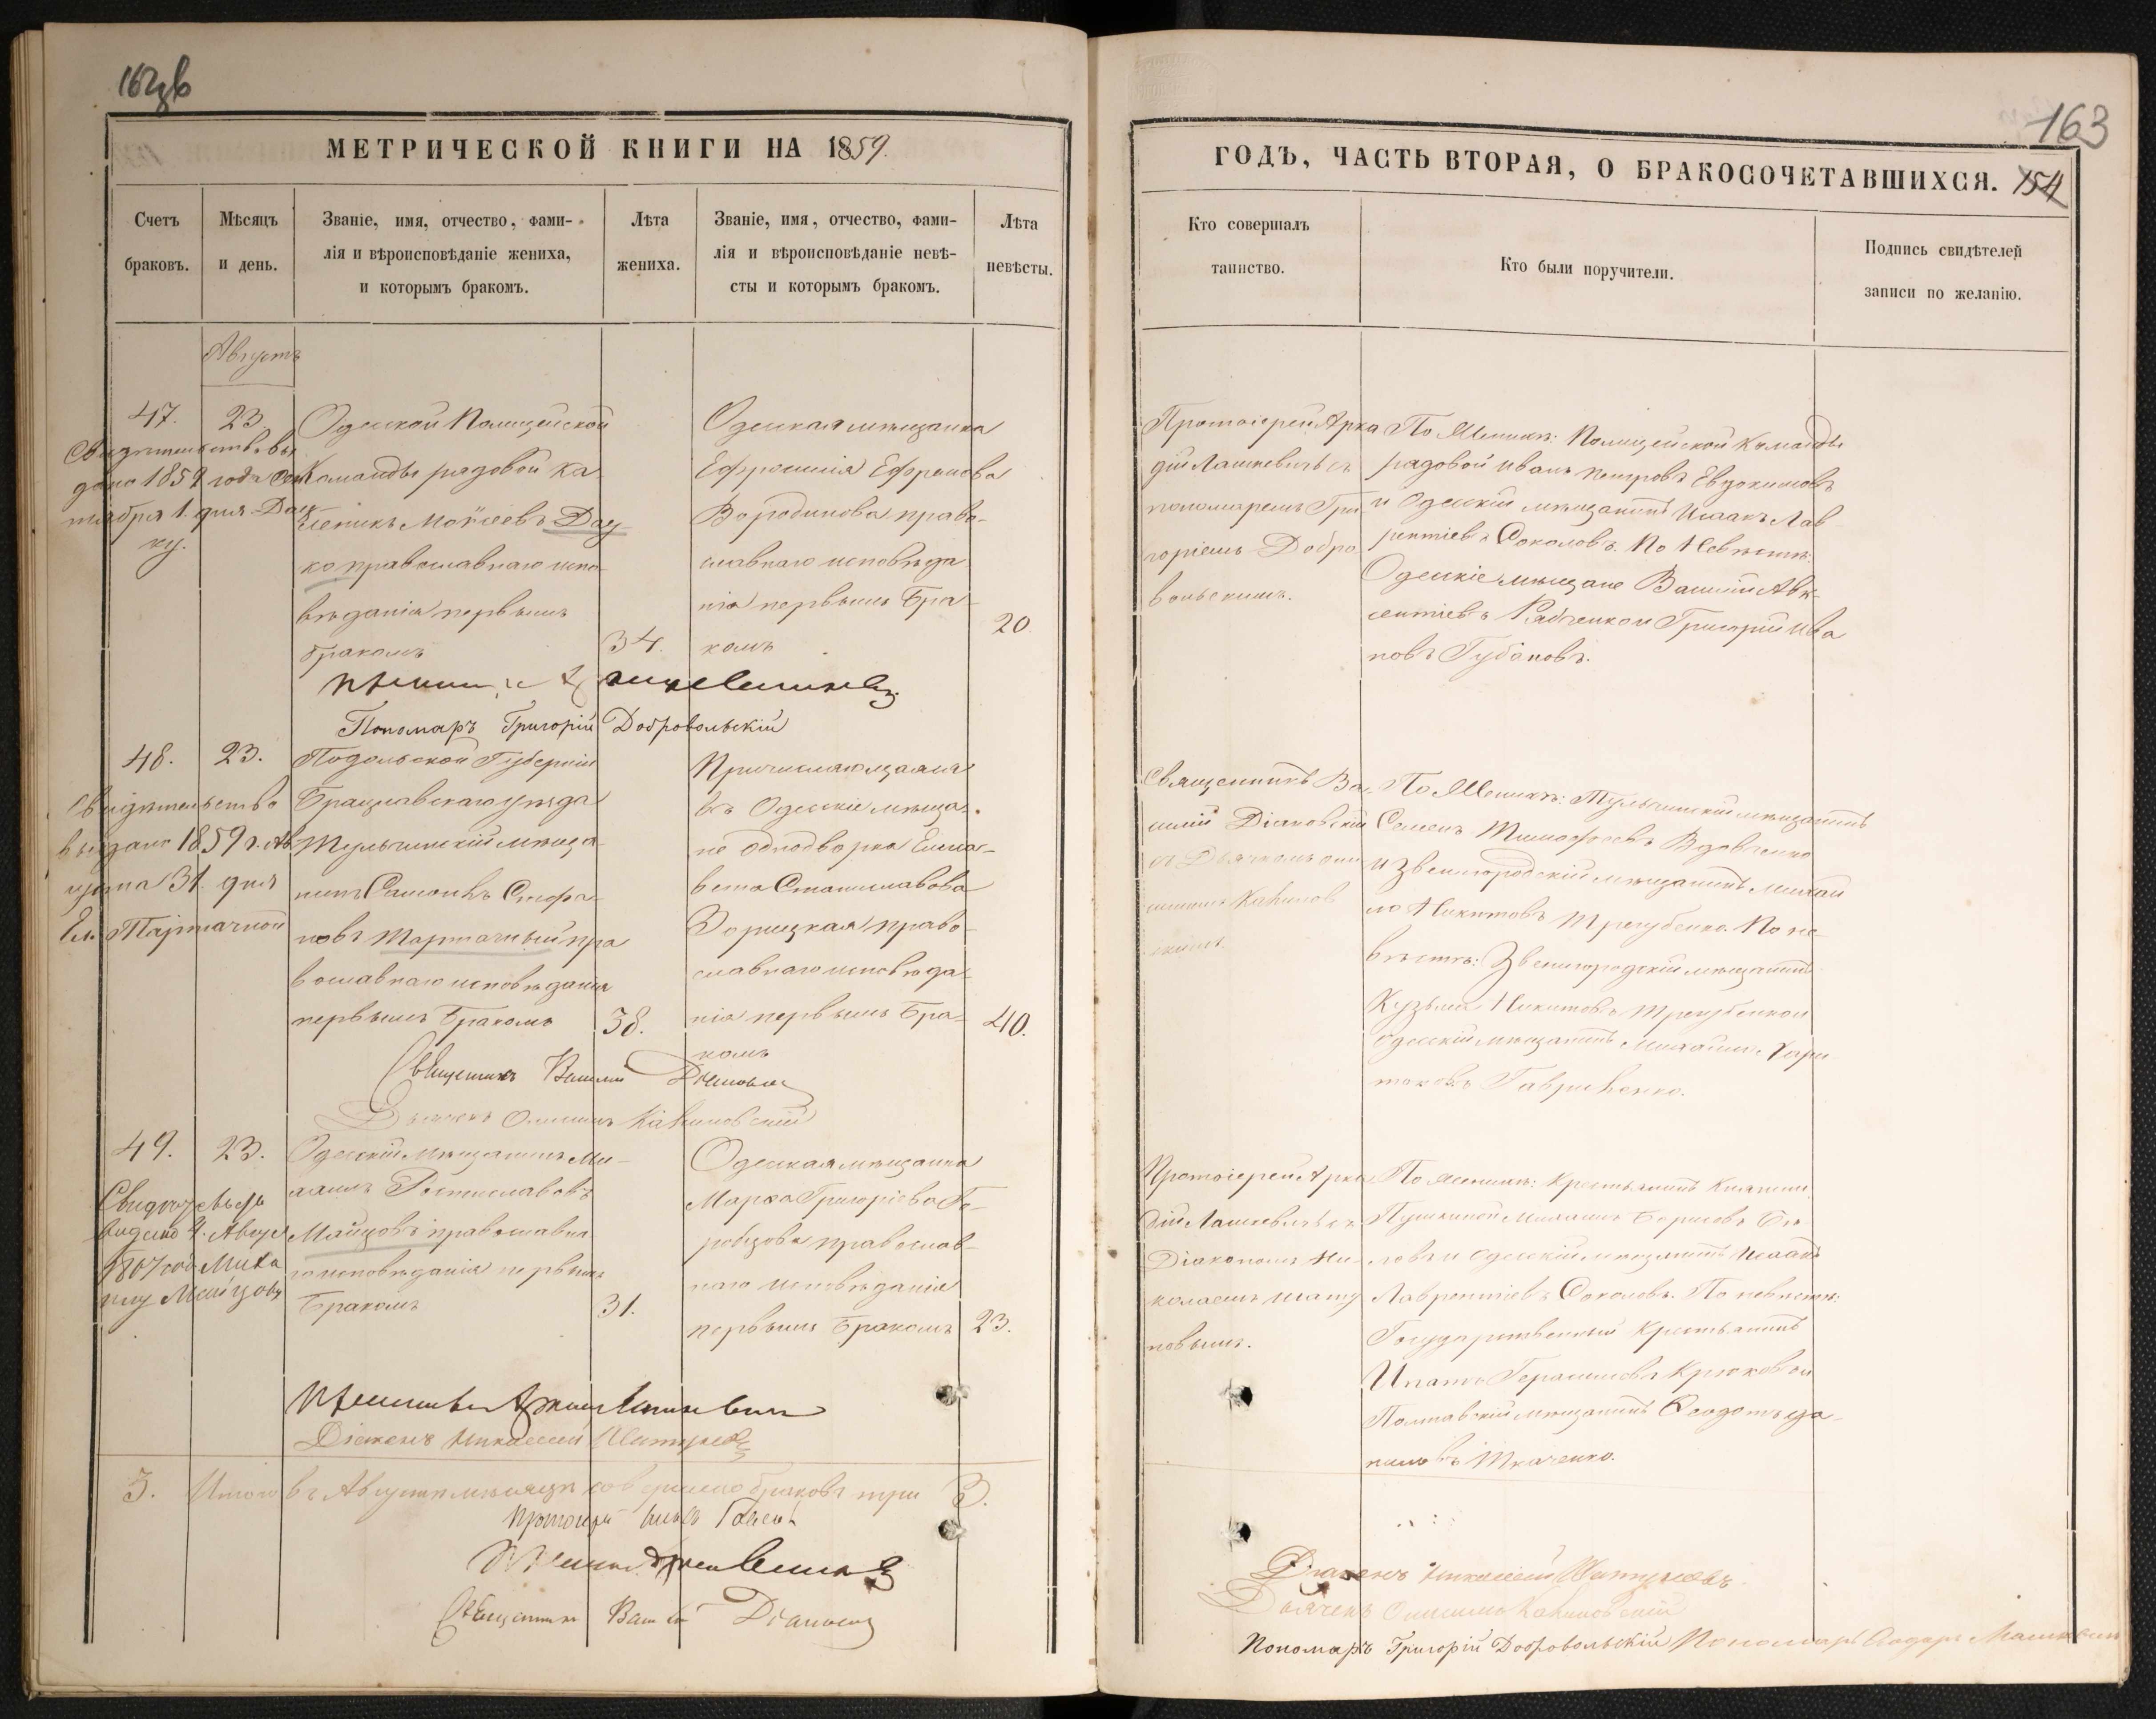 162об
МЕТРИЧЕСКОЙ КНИГИ НА 1859.
Счетъ
браковъ.
Мѣсяцъ
и день.
Званіе, имя, отчество, фами-
лія и вѣроисповѣданіе жениха,
и которымъ бракомъ.
Лѣта
жениха.
Званіе, имя, отчество, фами-
лія и вѣроисповѣданіе невѣ-
сты и которымъ бракомъ.
Лѣта
невѣсты.
Августъ
47.
23.
Свидѣтельство вы
дано 1859 года Сен
тября 1. дня Дац-
ку.
Одесской Полицейской
Команды рядовой Ка-
Моѵсеевъ Дац-
ко православнаго испо-
вѣданія первымъ
бракомъ
34.
Одесская мѣщанка
Ефросинія Ефремова
Бородинова право-
славнаго исповѣда
нія первымъ бра-
комъ
20.
Пономарь Григорій Добровольскій
48.
23.
Свидѣтельство
выдано 1859 г. Ав
густа 31. дня
Партачной
Подольской Губерніи
Брацлавскаго уѣзда
Тульчинскій мѣща-
нинъ Самсонъ Стефа-
новъ Партачный пра
вославнаго исповѣданія
первымъ бракомъ
38.
Причисляющаяся
въ Одесскіе мѣща-
не однодворка Елиса-
вета Станиславова
Зорицкая право-
славнаго исповѣда-
нія первымъ бра-
комъ
40.
Священникъ Василій Діяковскій
Дьячекъ Онисимъ
49.
23.
Свидѣтельство
видано 4. Август
Миха
илу Майцову
Одесскій мѣщанинъ Ми-
хаилъ Ростиславовъ
Майцовъ православна
го исповѣданія первымъ
бракомъ
31.
Одесская мѣщанка
Марѳа Григоріева Го-
робцова православ-
наго исповѣданія
первымъ бракомъ
23.
Діаконъ Николай Шатуновъ
3. Итого въ Августѣ мѣсяцѣ совершено браковъ три 3.
Священникъ Василій Діяковскій
163
ГОДЪ, ЧАСТЬ ВТОРАЯ, О БРАКОСОЧЕТАВШИХСЯ. 154
Кто совершалъ
таинство.
Кто были поручители.
Подпись свидѣтелей
записи по желанію.
Протоіерей Арка
дій Лашкевичъ съ
пономаремъ Гри
горіемъ Добро
вольскимъ.
По Женихѣ: Полицейской Команды
рядовой Иванъ Петровъ Евдокимовъ
и Одесскій мѣщанинъ Исаакъ Лав
рентіевъ Соколовъ. По Невѣстѣ:
Одесскіе мѣщане Василій Авк-
сентіевъ Рабченко и Григорій Ива
новъ Губановъ.
Священникъ Ва
силій Діяковскій
съ Дьячкомъ Они
симомъ
скимъ.
По Женихѣ: Тульчинскій мѣщанинъ
Семенъ Тимофеевъ Вдовченко
и Звенигородскій мѣщанинъ Михаи
ло Никитовъ Трегубенко. По не-
вѣстѣ: Звенигородскій мѣщанинъ
Кузьма Никитовъ Трегубенко и
Одесскій мѣщанинъ Михаилъ Хари
тоновъ Гавриленко.
Протоіерей Арка
дій Лашкевичъ съ
Діакономъ Ни-
колаемъ Шату
новымъ.
По женихѣ: Крестьянинъ Княгини
Пушкиной Михаилъ Борисовъ Бы-
ловъ и Одесскій мѣщанинъ Исаакъ
Лаврентіевъ Соколовъ. По невѣстѣ:
Государственный Крестьянинъ
Ипатъ Герасимовъ Крюков и
Полтавскій мѣщанинъ Ѳеодотъ Да-
ниловъ Ткаченко.
Діаконъ Николай Шатуновъ
Дьячекъ Онисимъ
Пономарь Григорій Добровольскій Пономарь